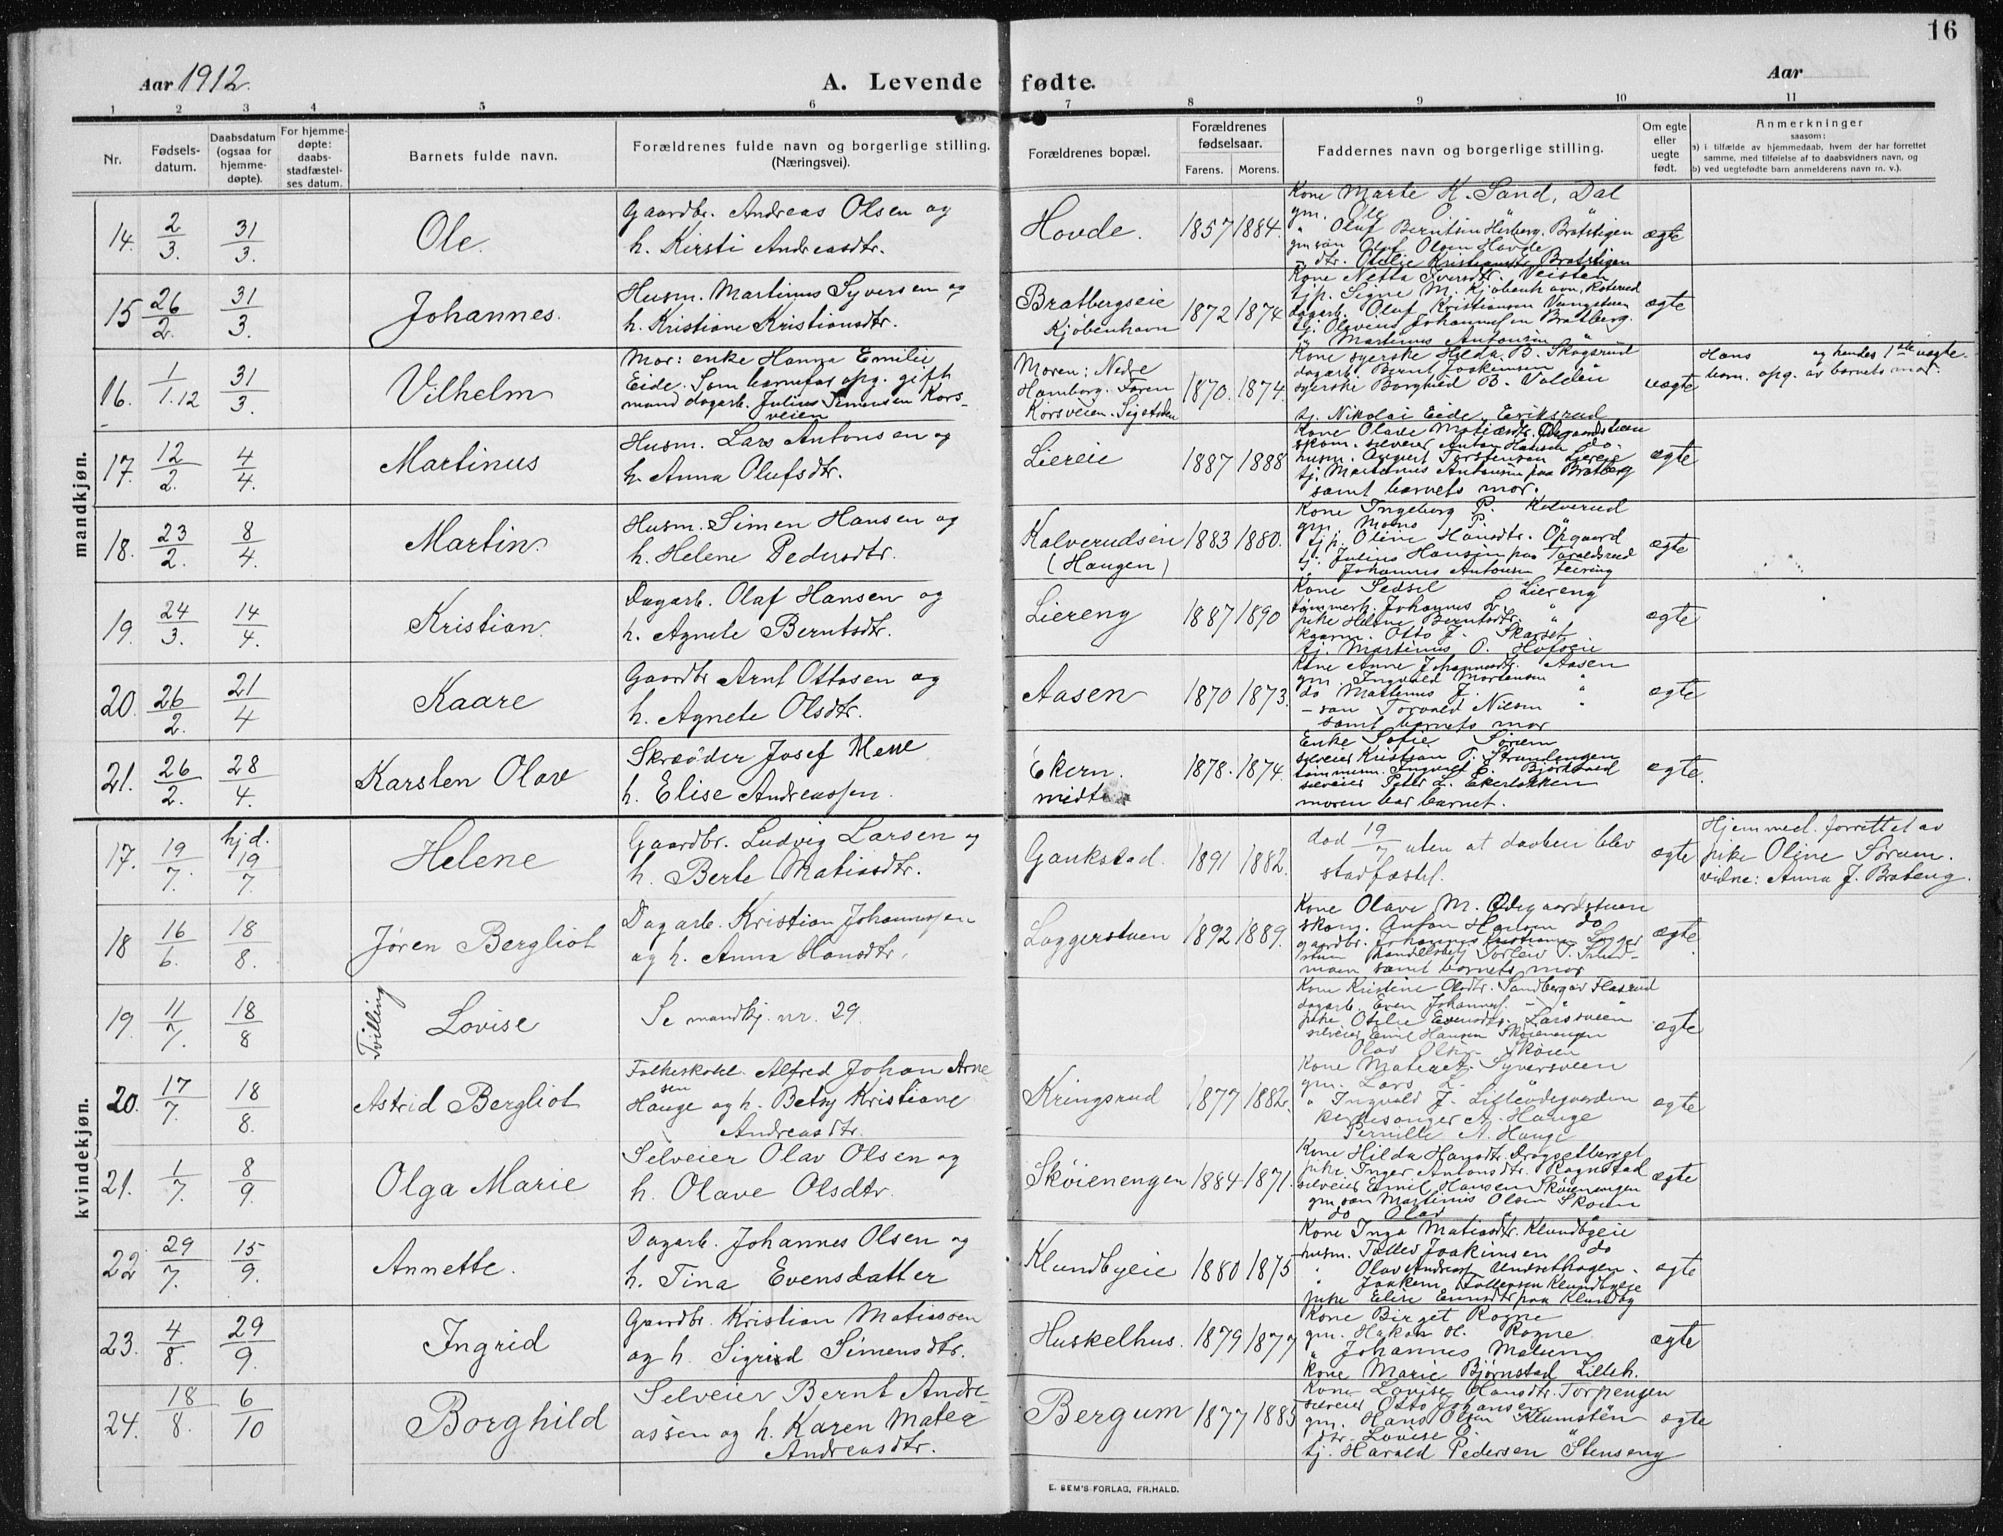 16
Aar 1912.
A. Levende fødte.
Aar
1 2 3 4 5 6 7 8 9 10 11
Nr.
Fødsels-
datum.
Daabsdatum
(ogsaa for
hjemme-
døpte).
For hjemme-
døpte:
daabs-
stadfæstel-
ses datum.
Barnets fulde navn.
Forældrenes fulde navn og borgerlige stilling.
(Næringsvei).
Forældrenes bopæl.
Forældrenes
fødselsaar.
Farens. Morens.
Faddernes navn og borgerlige stilling.
Om egte
eller
uegte
født.
Anmerkninger
saasom:
a) i tilfælde av hjemmedaab, hvem der har forrettet
samme, med tilføielse af to daabsvidners navn, og
b) ved uegtefødte barn anmelderens navn m. v.).
mandkjøn.
14. 2/3. 31/3. Ole.
Gaardbr. Andreas Olsen og
h. Kirsti Andreasdtr.
Hovde. 1857 1884.
Kone Marte K. Sand, Dal
gm. Ole O. "
" Olaf Berntsen Bratstigen
gm søn Olaf Olsen Hovde
dtr. Otilie Bratstigen
ægte
15 26/2. 31/3 Johannes.
Husm. Martinus Syversen og
h. Kristiane Kristiansdtr.
Bratbergseie
Kjøbenhavn
1872 1874
Kone Netta Iversdtr. Veisten
tj.p. Signe M. Kjøbenhavn,
dagarb. Olaf Kristiansen
tj. Olavus Johannesen Bratberg.
" Martinus Antonsen "
ægte
16. 1/1.12 31/3 Vilhelm
Mor: enke Hanna Emilie
Eide. Som barnefar opg. gift
mand dagarb. Julius Simensen Kors-
veien
Moren: Nedre
Hamborg. Faren
Korsveien.
1870. 1874.
Kone syerske Hilda B. Skogsrud
dagarb. Bernt Joakimsen "
syerske Borghild B.
tj. Nikolai Eide, Eriksrud
uægte
Hans og hendes 1ste uegte
barn. opg. av barnets mor.
17. 12/2. 4/4. Martinus
Husm. Lars Antonsen og
h. Anna Olufsdtr.
Liereie 1887 1888
Kone Olave Matiasdtr. Ødegaardstuen
skom. selveier Anton Hansen do.
husm. August Torstensen Liereie
tj. Martinus Antonsen paa Bratberg
samt barnets mor.
ægte
18. 23/2. 8/4. Martin.
Husm. Simen Hansen og
h. Helene Pedersdtr.
Kalverudseie
(Haugen)
1883 1880.
Kone Ingeborg P. Kalverud
gm. Mons P. "
tj.p. Oline Hansdtr. Opgaard
tj. Julius Hansen paa Taraldsrud
" Johannes Antonsen Feiring
ægte
19. 24/3. 14/4. Kristian.
Dagarb. Olaf Hansen og
h. Agnete Berntsdtr.
Liereng 1887 1890
Kone Sedsel Liereng
tømmerh. Johannes L. "
pike Helene Berntsdtr. "
Otto J. Skarset
tj. Martinus O. Hofseie
ægte
20. 26/2. 21/4 Kaare
Gaardbr Arnt Ottosen og
h. Agnete Olsdtr.
Aasen 1870 1873.
Kone Anne Johannesdtr. Aasen
gm. Ingvald Mortensen "
do Martinus J. "
- søn Torvald Nilsen "
samt barnets mor
ægte
21. 26/2. 28/4. Karsten Olav
Skræder Josef
h. Elise Andreassen.
Ekern.
midt
1878. 1874.
Enke Sofie Sørum
selveier Kristian T. Strandengen
tømmerm. Ingvald E.
selveier Peter L. Ekerløkken
moren bar barnet.
ægte.
kvindekjøn.
17. 19/7. hjd. 19/7. Helene
Gaardbr. Ludvig Larsen og
h. Berte Matiasdtr.
Gaukstad. 1891 1882.
død 19/7 uten at daaben blev
stadfæstet.
ægte
Hjemmed. forrettet av
pike Oline Sørum.
vidne: Anna J. Brateng.
18 16/6. 18/8. Jøren Bergliot
Dagarb. Kristian Johannessen
og h. Anna Hansdtr.
Laggerstuen 1892 1889.
Kone Olave M. Ødegaardstuen
skom. Anton Hansen do
gaardbr. Johannes Kristiansen Lagger
stuen Handelsbetj Torleiv T. Sund-
moen samt barnets mor
ægte.
19. 11/7. 18/8 Tvilling Lovise
Se mandkj. nr. 29
Kone Kristine Olsdtr. Sandberg av Flasrud
dagarb. Even Johannes. - " "
pike Otilie Evensdtr. Larsveien
selveier Emil Hansen Skøienengen
Olav Olsen Skøien
ægte
20. 17/7. 18/8. Astrid Bergliot
Folkeskolel. Alfred Johan Arne
sen
Hauge og h. Betsy Kristiane
Andreasdtr.
Kringsrud 1877 1882.
Kone Matea Syversveen
gm. Lars L. "
" Ingvald J. Lilleødegaarden
kirkesanger A. Hauge
Pernille A. Hauge
ægte
21. 1/7. 8/9. Olga Marie
Selveier Olav Olsen og
h. Olave Olsdtr.
Skøienengen 1884 1871.
Kone Hilda Hansdtr. Drogsetberget
pike Inger Antonsdtr. Rognstad
selveier Emil Hansen Skøienengen
gm søn Martinius Olsen Skøien
do Olav "
ægte
22. 29/7. 15/9. Annette.
Dagarb. Johannes Olsen og
h. Tina Evensdatter
Klundbyeie 1880 1875
Kone Inga Matiasdtr. Klundbyeie
husm. Tollev Joakimsen do
" Olav Andreas. Undsethagen.
" Joakim Tollevsen Klundbyeie
pike Elise Evensdtr paa Klundby
ægte
23. 4/8. 29/9. Ingrid
Gaardbr. Kristian Matiassen
og h. Sigrid Simensdtr.
Huskelhus. 1879 1877
Kone Birget Rogne
gm. Hakon H. Rogne.
" Johannes Matum
kone Marie Bjørnstad Lilleh.
ægte
24. 18/8. 6/10 Borghild
Selveier Bernt Andre-
assen og h. Karen Matea
Andreasdtr.
Bergum 1877 1885
Kone Lovise Hansdtr. Torpengen
selveier Otto Johansen "
gm. Hans Olsen Klumstén
" dtr. Lovise O. "
tj. Harald Pedersen Stenseng
ægte
E. SEM'S FORLAG, FR.HALD.